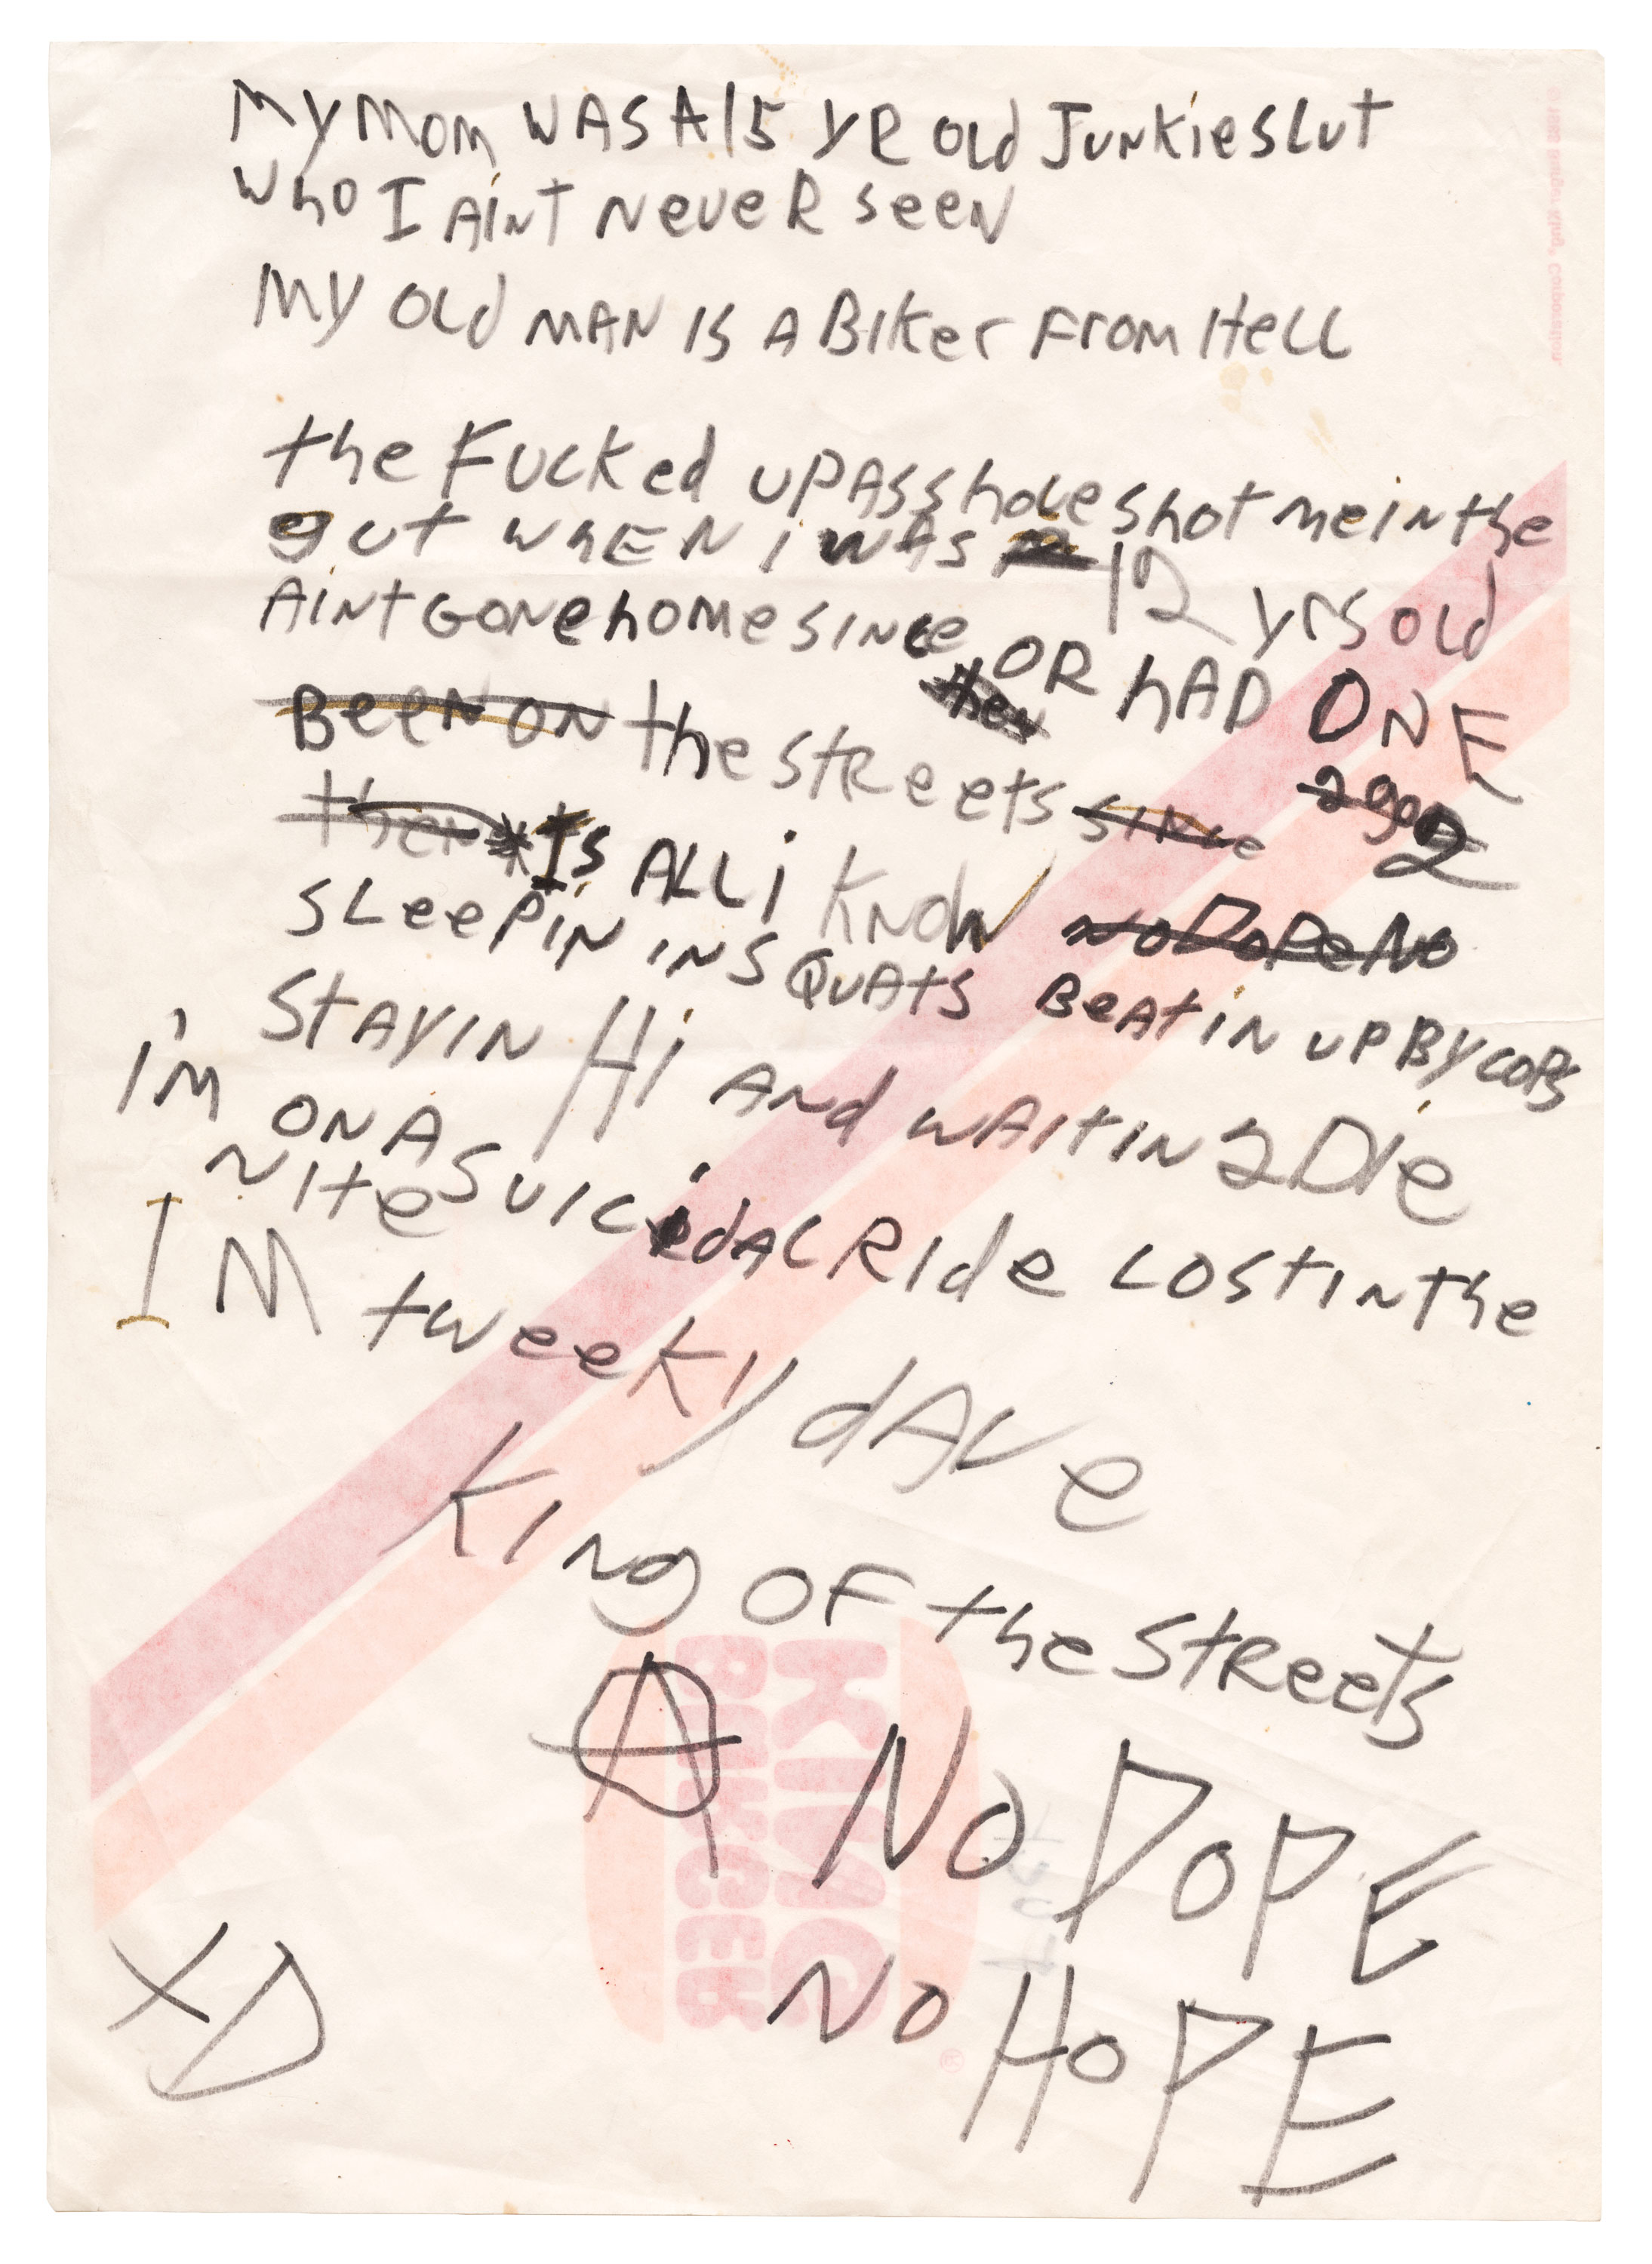 My MOM WAS A 15 YR Old Junkie SLUT
who I AINT NEVER SEEN
MY OLd MAN IS A BIKer From HeLL
the Fucked UP ASShole shot me in the
gut whEN i WAS 12 yrs old
AINt GONe home SINce then OR hAD ONE
BeeN ON the stReets SINce 2 go 2
then * Is ALL i KNOW No Dope No
SLeePIN IN SQUAtS BeAtIN UP BY COPS
StAYIN Hi AND WAItIN 2 DIe
I'M ON A SUICIdAL RIde LOST IN the
NIte
I M tweeKy dAVe
KINg OF the StReets
Ⓐ NO DOPE
NO HOPE
XD
BURGER KING
®
Burger King Corporation